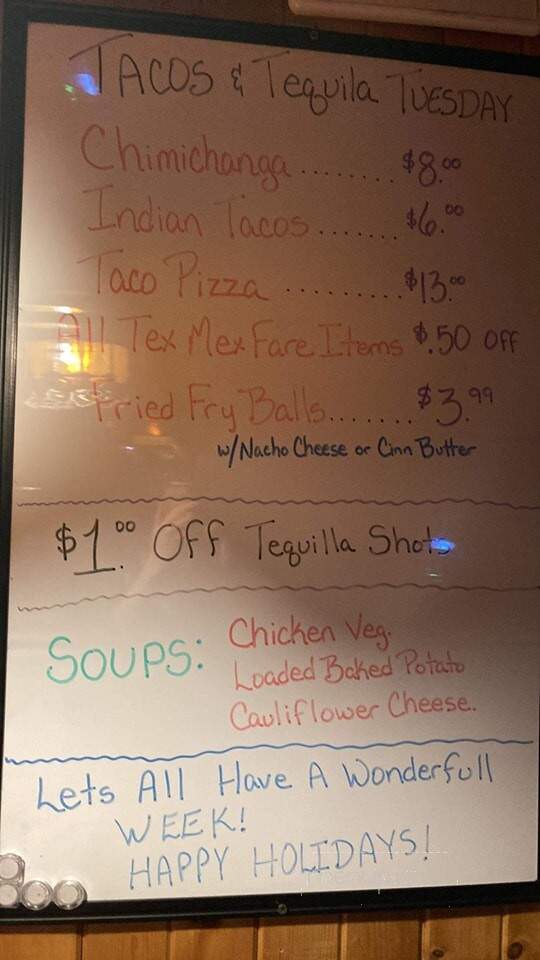 TACOS & Tequila TUESDAY
Chimichanga ........ $8.00
Indian Tacos ....... $6.00
Taco Pizza .......... $13.00
All Tex Mex Fare Items $.50 off
Fried Fry Balls....... $3.99
w/Nacho Cheese or Cinn Butter
$1.00 Off Tequilla Shots
SOUPS: Chicken Veg.
Loaded Baked Potato
Cauliflower Cheese.
Lets All Have A Wonderfull
WEEK!
HAPPY HOLIDAYS!